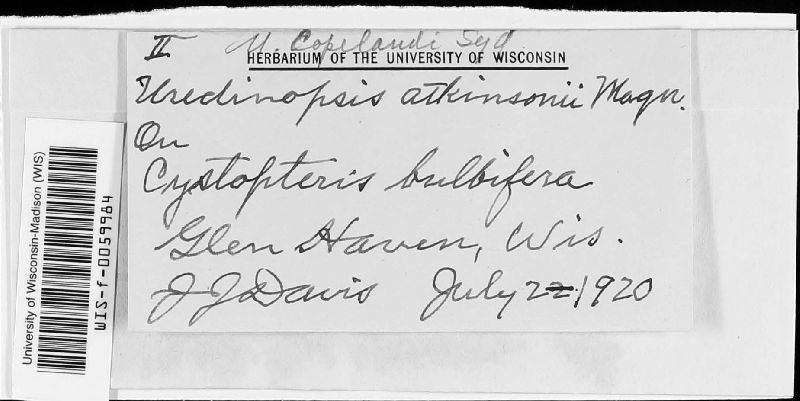 II U. Copelandi Syd
HERBARIUM OF THE UNIVERSITY OF WISCONSIN
Uredinopsis atkinsonii Magn.
On
Cystopteris bulbifera
Glen Haven, Wis.
J J Davis July 22 1920
University of Wisconsin-Madison (WIS)
WIS-f-0059984